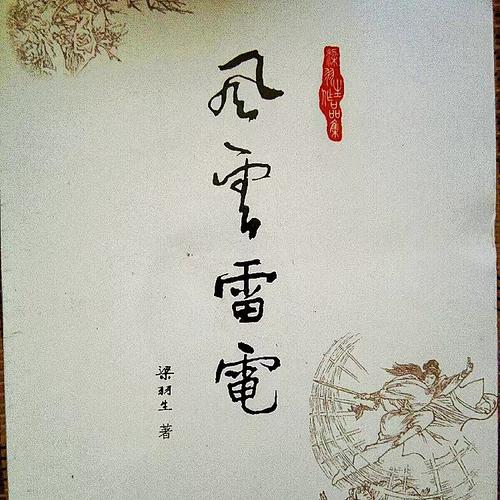 梁羽生作品集
風雲雷電
梁羽生 著